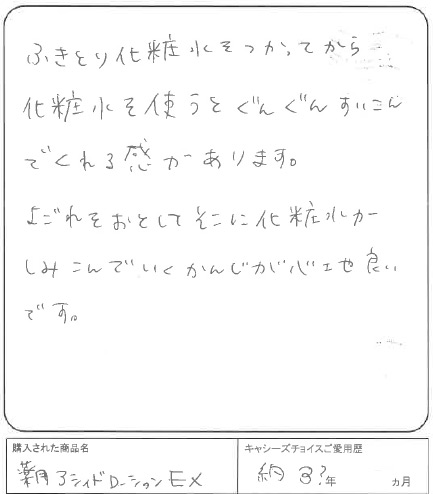 ふきとり化粧水をつかってから
化粧水を使うとぐんぐんすいこん
でくれる感がーあります。
よごれをおとしてそこに化粧水がー
しみこんでいくかんじが心エや良い
です。
購入された商品名
薬用アシィドローションEX
キャシーズチョイスご愛用歴
約3?年 ヵ月